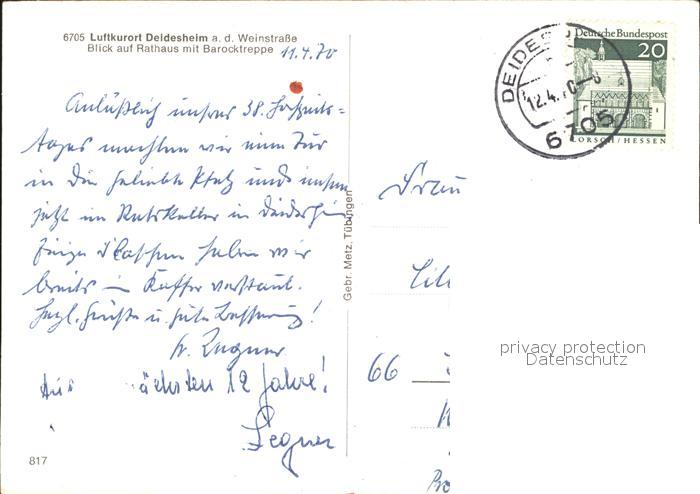 6705 Luftkurort Deidesheim a. d. Weinstraße
Blick auf Rathaus mit Barocktreppe
11.4.70
Anläßlich unseres 38. Hochzeits=
tages machten wir eine Tour
in die geliebte Pfalz und
jetzt im Ratskeller in Deidesheim
Einige Flaschen haben wir
bereits im Koffer verstaut.
Herzl. Grüße u. gute Besserung!
nächsten 12 Jahre!
817
Gebr. Metz, Tübingen
DEIDES
12.4.70-8
6705
Deutsche Bundespost
20
LORSCH/HESSEN
Frau
66
privacy protection
Datenschutz